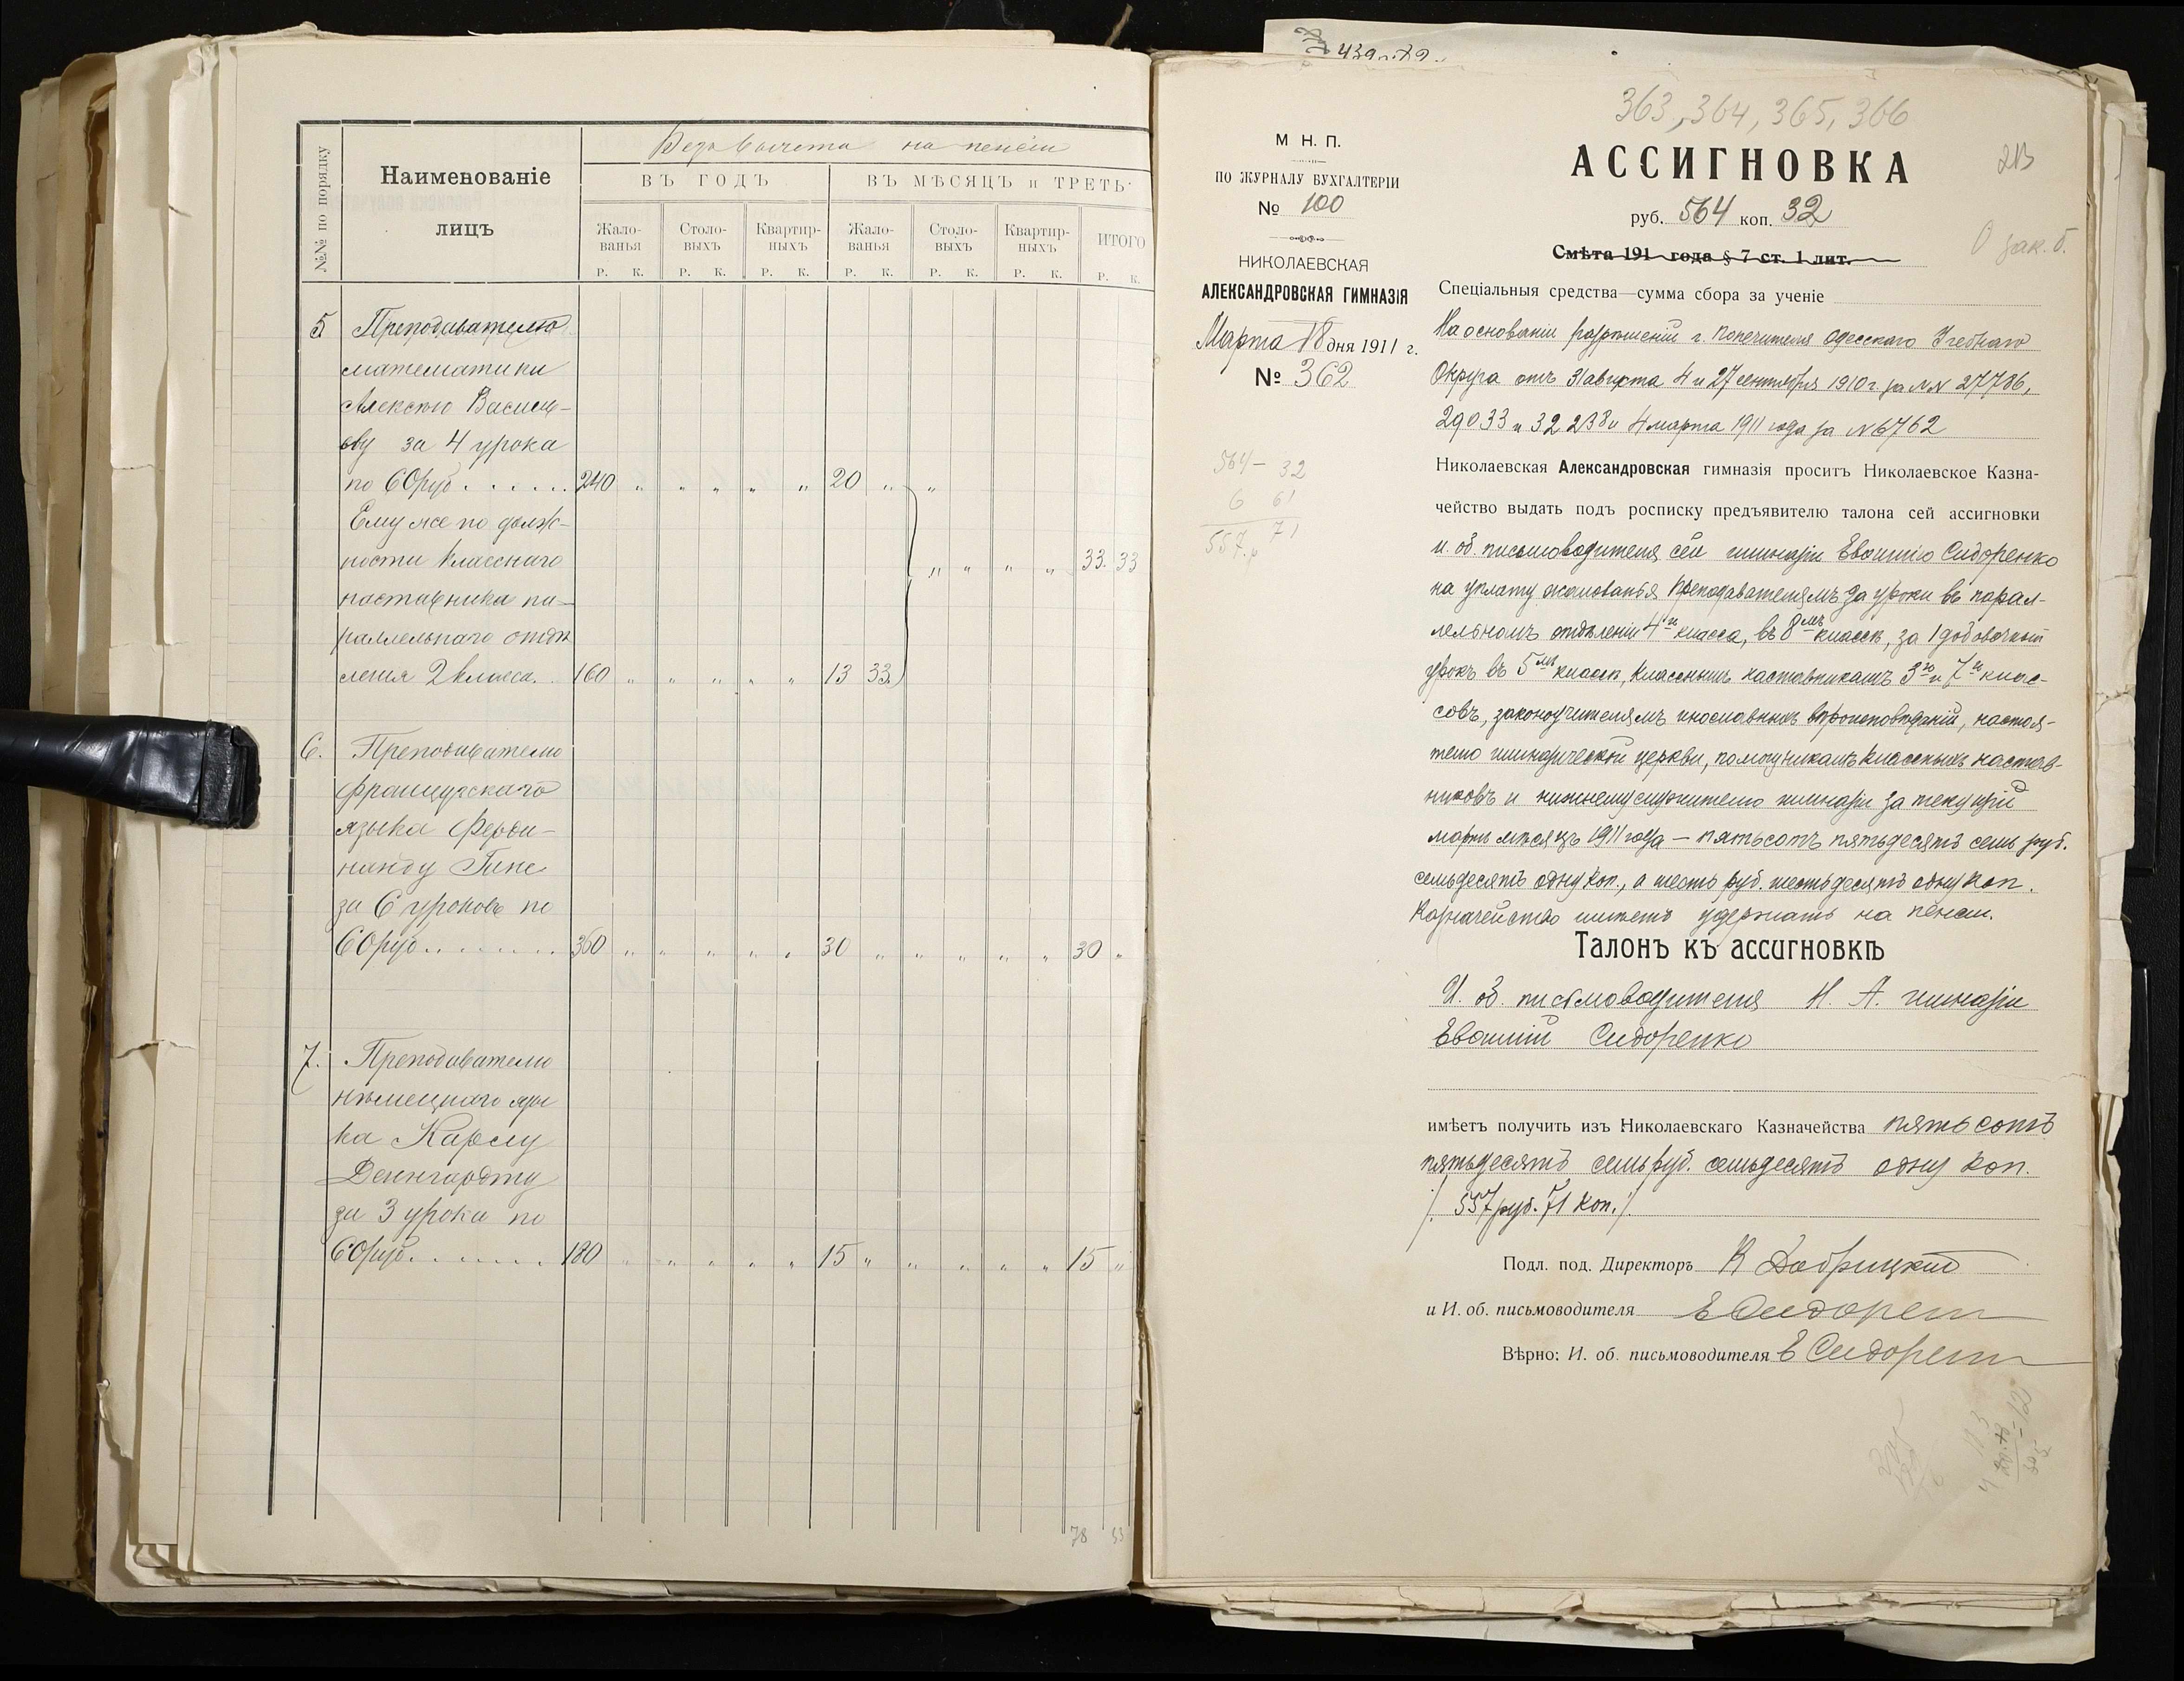 Безъ вычета на пенсіи
№№ по порядку
Наименованіе
лицъ
ВЪ ГОДЪ
ВЪ МѢСЯЦЪ и ТРЕТЬ
Жало-
ванья
Столо-
выхъ
Квартир-
ныхъ
Жало-
ванья
Столо-
выхъ
Квартир-
ныхъ
ИТОГО
Р. К. Р. К. Р. К. Р. К. Р. К. Р. К. Р. К.
5 Преподавателю
математики
Алексѣю Василь-
еву за 4 урока
по 60руб. . . . . . 240 „ „ „ „ „ 20 „ „
Ему же по долж-
ности класснаго
наставника па-
раллельнаго отдѣ
ленія 2 класса. . 160 „ „ „ „ „ 13 33 „ „ „ „ 33. 33
6. Преподавателю
французскаго
языка Ферди-
нанду Гипс
за 6 уроковъ по
60руб. . . . . . . . 360 „ „ „ „ „ 30 „ „ „ „ „ 30 „
7. Преподавателю
нѣмецкаго язы
ка Карлу
Денгардту
за 3 урока по
60руб. . . . . . . 180 „ „ „ „ „ 15 „ „ „ „ „ 15 „
78 33
363, 364, 365, 366
М Н. П.
ПО ЖУРНАЛУ БУХГАЛТЕРІИ
№ 100
НИКОЛАЕВСКАЯ
АЛЕКСАНДРОВСКАЯ ГИМНАЗІЯ
Марта 18 дня 1911 г.
№ 362
564 — 32
6 61
557.р 71
АССИГНОВКА
213
руб. 564 коп. 32
Смѣта 191 года § 7 ст. 1 лит.
О зак. б.
Спеціальныя средства—сумма сбора за ученіе
На основаніи разрѣшеній г. Попечителя Одесскаго Учебнаго
Округа отъ 31 августа 4 и 27 сентября 1910 г. за №№ 27786,
29033 и 32238 и 4 марта 1911 года за № 6762
Николаевская Александровская гимназія проситъ Николаевское Казна-
чейство выдать подъ росписку предъявителю талона сей ассигновки
и. об. письмоводителя сей гимназіи Евфимію Сидоренко
на уплату жалованья преподавателямъ за уроки въ парал-
лельномъ отдѣленіи 4го класса, въ 8мъ классѣ, за 1 добавочный
урокъ въ 5мъ классѣ, класснымъ наставникамъ 3го и 7го клас-
совъ, законоучителямъ инославныхъ вѣроисповѣданій, настоя-
телю гимназической церкви, помощникамъ классныхъ настав-
никовъ и нижнему служителю гимназіи за текущій
мартъ мѣсяцъ 1911 года — пятьсотъ пятьдесятъ семь руб.
семьдесятъ одну коп., а шесть руб. шестьдесятъ одну коп.
Казначейство имѣетъ удержать на пенсіи.
Талонъ къ ассигновкѣ
И. об. письмоводителя Н. А. гимназіи
Евфимій Сидоренко
имѣетъ получить изъ Николаевскаго Казначейства пятьсотъ
пятьдесятъ семь руб. семьдесятъ одну коп.
/. 557 руб. 71 коп. /.
Подл. под. Директоръ К Добрицкій
и И. об. письмоводителя Е Сидорен
Вѣрно: И. об. письмоводителя Е Сидорен